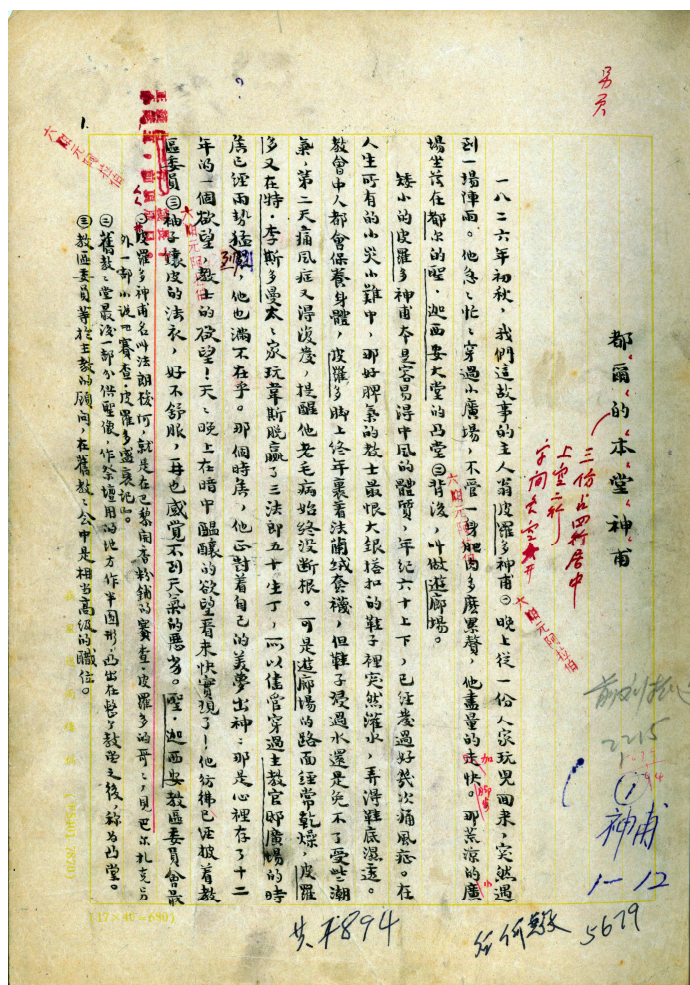 都爾的本堂神甫
一八二六年初秋，我們這故事的主人翁皮羅多神甫㊀晚上從一份人家玩兒回來，突然遇
到一場陣雨。他急急忙忙穿過小廣場，不管一身肥肉多麼累贅，他盡量的走快。那荒涼的廣
場坐落在都爾的聖·迦西安大堂的凸堂㊁背後，叫做遊廊場。
矮小的皮羅多神甫本是容易得中風的體質，年紀六十上下，已經發過好幾次痛風症。在
人生所有的小災小難中，那好脾氣的教士最恨大銀搭扣的鞋子裡突然灌水，弄得鞋底濕透。
教會中人都會保養身體，皮羅多腳上終年裹着法蘭絨套襪，但鞋子浸過水還是免不了受些潮
氣，第二天痛風症又得復發，提醒他老毛病始終沒斷根。可是遊廊場的路面經常乾燥，皮羅
多又在特·李斯多曼太太家玩韋斯脫贏了三法郎五十生丁，所以儘管穿過主教官邸廣場的時
候已經雨勢猛烈，他也滿不在乎。那個時候，他正對着自己的美夢出神：那是心裡存了十二
年的一個欲望，教士的欲望！天天晚上在暗中醞釀的欲望看來快實現了！他彷彿已經披着教
區委員㊂袖子鑲皮的法衣，好不舒服，再也感覺不到天氣的惡劣。聖·迦西安教區委員會最
㊀皮羅多神甫名叫法朗梭阿，就是在巴黎開香粉鋪的賽查·皮羅多的哥哥，見巴爾扎克另
外一部小說『賽查·皮羅多盛衰記』。
㊁舊教教堂最後一部分供聖像，作祭壇用的地方作半圓形，凸出在整個教堂之後，稱為凸堂。
㊂教區委員等於主教的顧問，在舊教教會中是相當高級的職位。
1.
另頁
三份占四行居中
上空二行
六四元阿拉伯
六四元阿拉伯
六四元阿拉伯
六四元阿拉伯
加
小
2215
①
神甫
1-12
5679
共 894
(17×40=680)